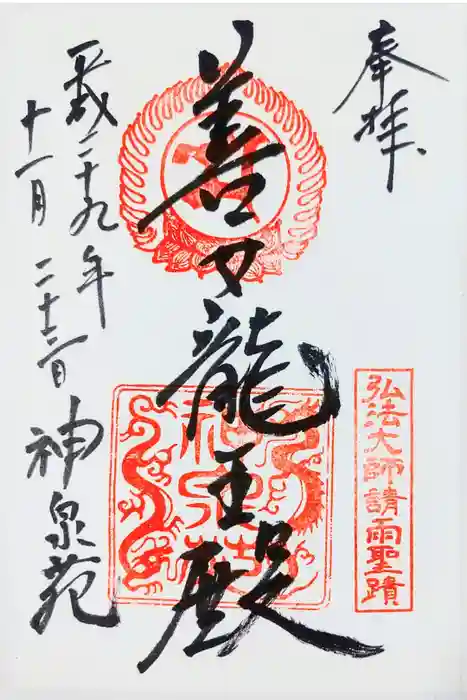 奉拝
弘法大師請雨聖蹟
善女龍王殿
神泉苑
平成二十九年
十一月二十三日
神泉苑